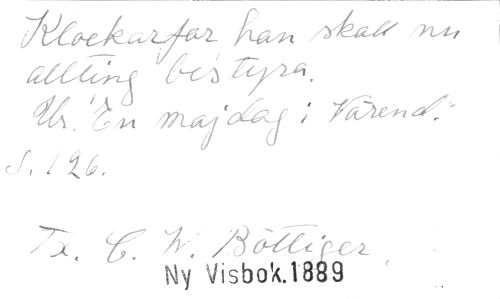 Klockarfar han skall nu
allting bestyra.
Ur. "En majdag i Värend."
S. 126.
Tx. C. W. Böttiger.
Ny Visbok.1889